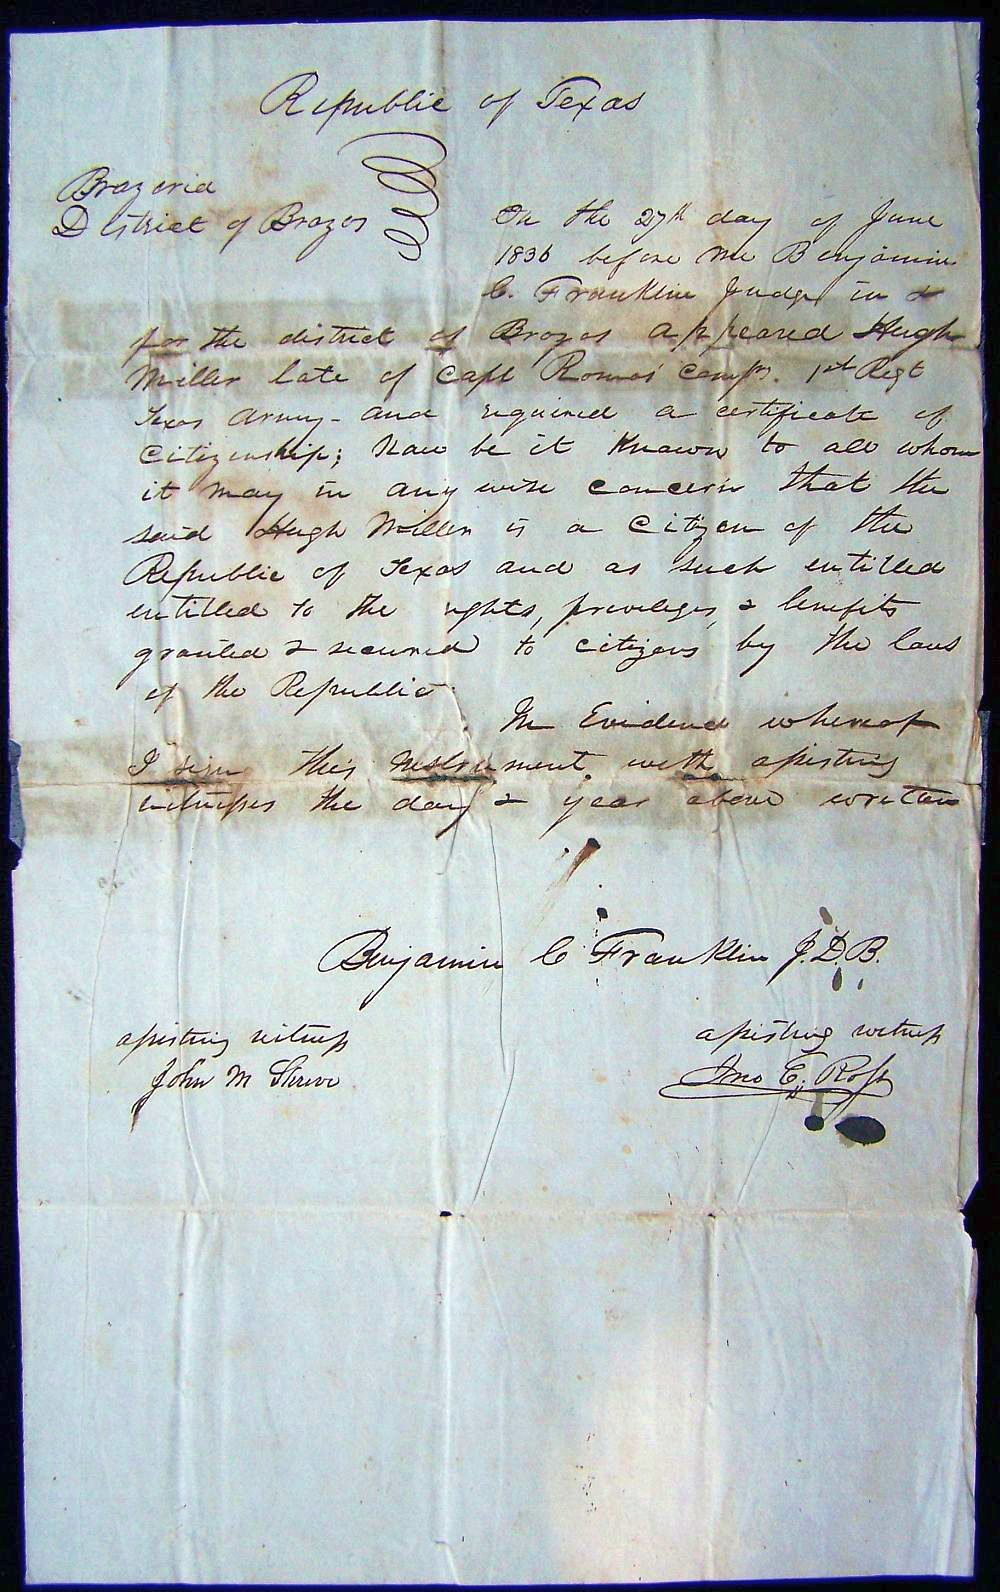 Republic of Texas
Brazoria
District of Brazos
On the 27th day of June
1836 before me Benjamin
C. Franklin Judge in &
for the district of Brozos appeared Hugh
Miller late of Capt Romans' Comp. 1st Regt
Texas Army - and required a certificate of
Citizenship; Now be it Known to all whom
it may in any wise concern that the
said Hugh Miller is a Citizen of the
Republic of Texas and as such entitled
entitled to the rights, priveleges, & benefits
granted & secured to citizens by the laws
of the Republic
In Evidence whereof
I sign this instrument with assisting
witnesses the day & year above written
Benjamin C Franklin J.D.B.
assisting witness
John M Shreve
assisting witness
Jno E. Ross